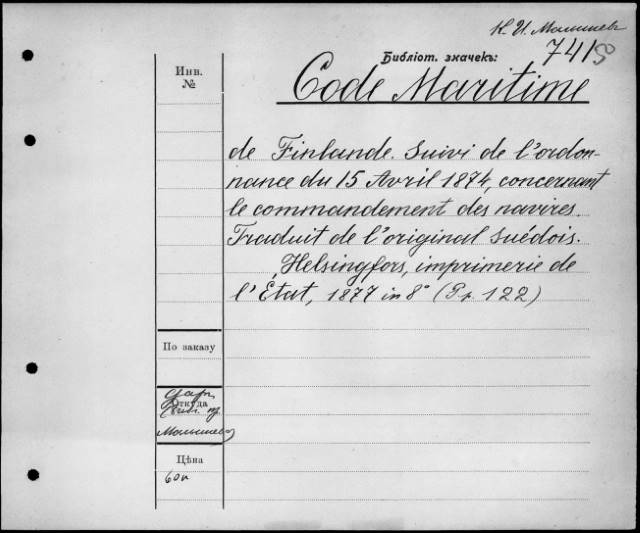 К. И. Малышевъ
Библіот. значекъ:
741
Инв.
№
Code Maritime
de Finlande. Suivi de l'ordon-
nance du 15 Avril 1874, concernant
le commandement des navires.
Traduit de l'original suédois.
Helsingfors, imprimerie de
l'État, 1877 in 8° (Pp. 122)
По заказу
Откуда
Малышева
Цѣна
60к